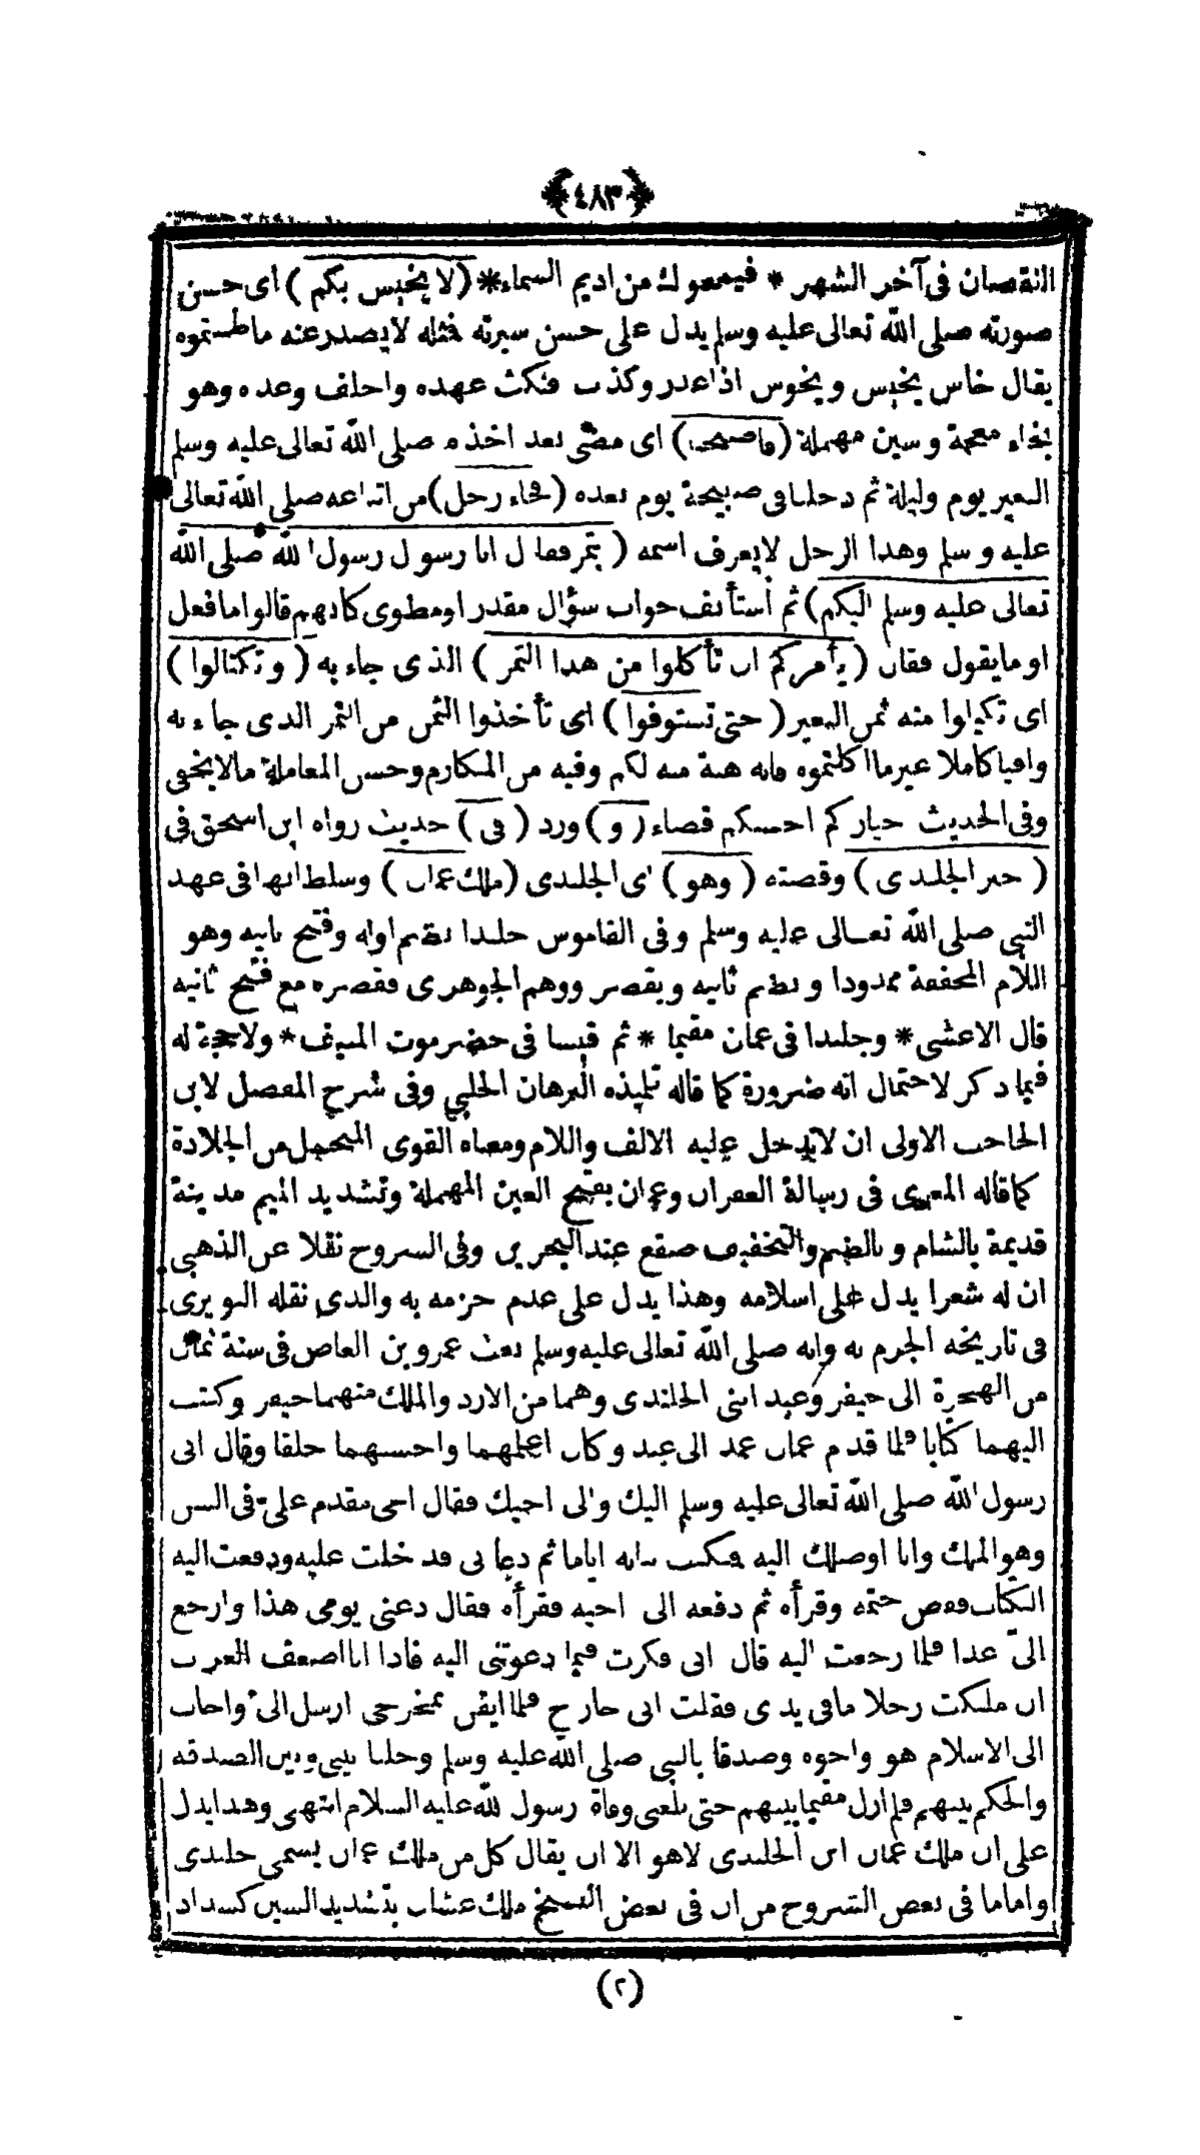 ﴿٤٨٣﴾
النقصان فى آخر الشهر * فيمحوك من اديم السماء * (لا يخيس بكم) اى حسن
صورته صلى الله تعالى عليه وسلم يدل على حسن سيرته فمثله لا يصدر عنه ما ظننتموه
يقال خاس يخيس ويخوس اذا غدر وكذب فنكث عهده واخلف وعده وهو
بخاء معجمة وسين مهملة (فاصبحنا) اى مضى بعد اخذه صلى الله تعالى عليه وسلم
البعير يوم وليلة ثم دخلنا فى صبيحة يوم بعده (فجاء رجل) من اتباعه صلى الله تعالى
عليه وسلم وهذا الرجل لا يعرف اسمه (بتمر فقال انا رسول رسول الله صلى الله
تعالى عليه وسلم اليكم) ثم استأنف جواب سؤال مقدر او مطوى كانهم قالوا ما فعل
او ما يقول فقال (يأمركم ان تأكلوا من هذا التمر) الذى جاء به (وتكتالوا)
اى تكيلوا منه ثمن البعير (حتى تستوفوا) اى تأخذوا الثمن من التمر الذى جاء به
وافيا كاملا غير ما اكلتموه فانه هبة منه لكم وفيه من المكارم وحسن المعاملة مالا يخفى
وفى الحديث خياركم احسنكم قضاء (و) ورد (فى) حديث رواه ابن اسحق فى
(خبر الجلندى) وقصته (وهو) اى الجلندى (ملك عمان) وسلطانها فى عهد
النبى صلى الله تعالى عليه وسلم وفى القاموس جلندا بضم اوله وفتح ثانيه وهو
اللام المخففة ممدودا وبضم ثانيه ويقصر ووهم الجوهرى فقصره مع فتح ثانيه
قال الاعشى * وجلندا فى عمان مقيما * ثم قيسا فى حضرموت المنيف * ولا حجة له
فيما ذكر لاحتمال انه ضرورة كما قاله تلميذه البرهان الحلبى وفى شرح المفصل لابن
الحاجب الاولى ان لا تدخل عليه الالف واللام ومعناه القوى المتحمل من الجلادة
كما قاله المعرى فى رسالة الغفران وعمان بفتح العين المهملة وتشديد الميم مدينة
قديمة بالشام وبالضم والتخفيف صقع عند البحرين وفى الشروح نقلا عن الذهبى
ان له شعرا يدل على اسلامه وهذا يدل على عدم جزمه به والذى نقله النويرى
فى تاريخه الجزم به وانه صلى الله تعالى عليه وسلم بعث عمرو بن العاص فى سنة ثمان
من الهجرة الى جيفر وعبد ابنى الجلندى وهما من الازد والملك منهما جيفر وكتب
اليهما كتابا فلما قدم عمان عمد الى عبد وكان اعملهما واحسنهما خلقا وقال انى
رسول الله صلى الله تعالى عليه وسلم اليك والى اخيك فقال اخى مقدم علىّ فى السن
وهو الملك وانا اوصلك اليه فمكث ببابه اياما ثم دعا بى فدخلت عليه ودفعت اليه
الكتاب ففض ختمه وقرأه ثم دفعه الى اخيه فقرأه فقال دعنى يومى هذا وارجع
الىّ غدا فلما رجعت اليه قال انى فكرت فيما دعوتنى اليه فاذا انا اضعف العرب
ان ملكت رجلا ما فى يدى فقلت انى خارج فلما ايقن بمخرجى ارسل الىّ واجاب
الى الاسلام هو واخوه وصدقا بالنبى صلى الله عليه وسلم وخليا بينى وبين الصدقة
والحكم بينهم فلم ازل مقيما بينهم حتى بلغنى وفاة رسول الله عليه السلام انتهى وهذا يدل
على ان ملك عمان ابن الجلندى لا هو الا ان يقال كل من ملك عمان يسمى جلندى
واما ما فى بعض الشروح من ان فى بعض النسخ ملك غسان بتشديد السين كسداد
(٢)